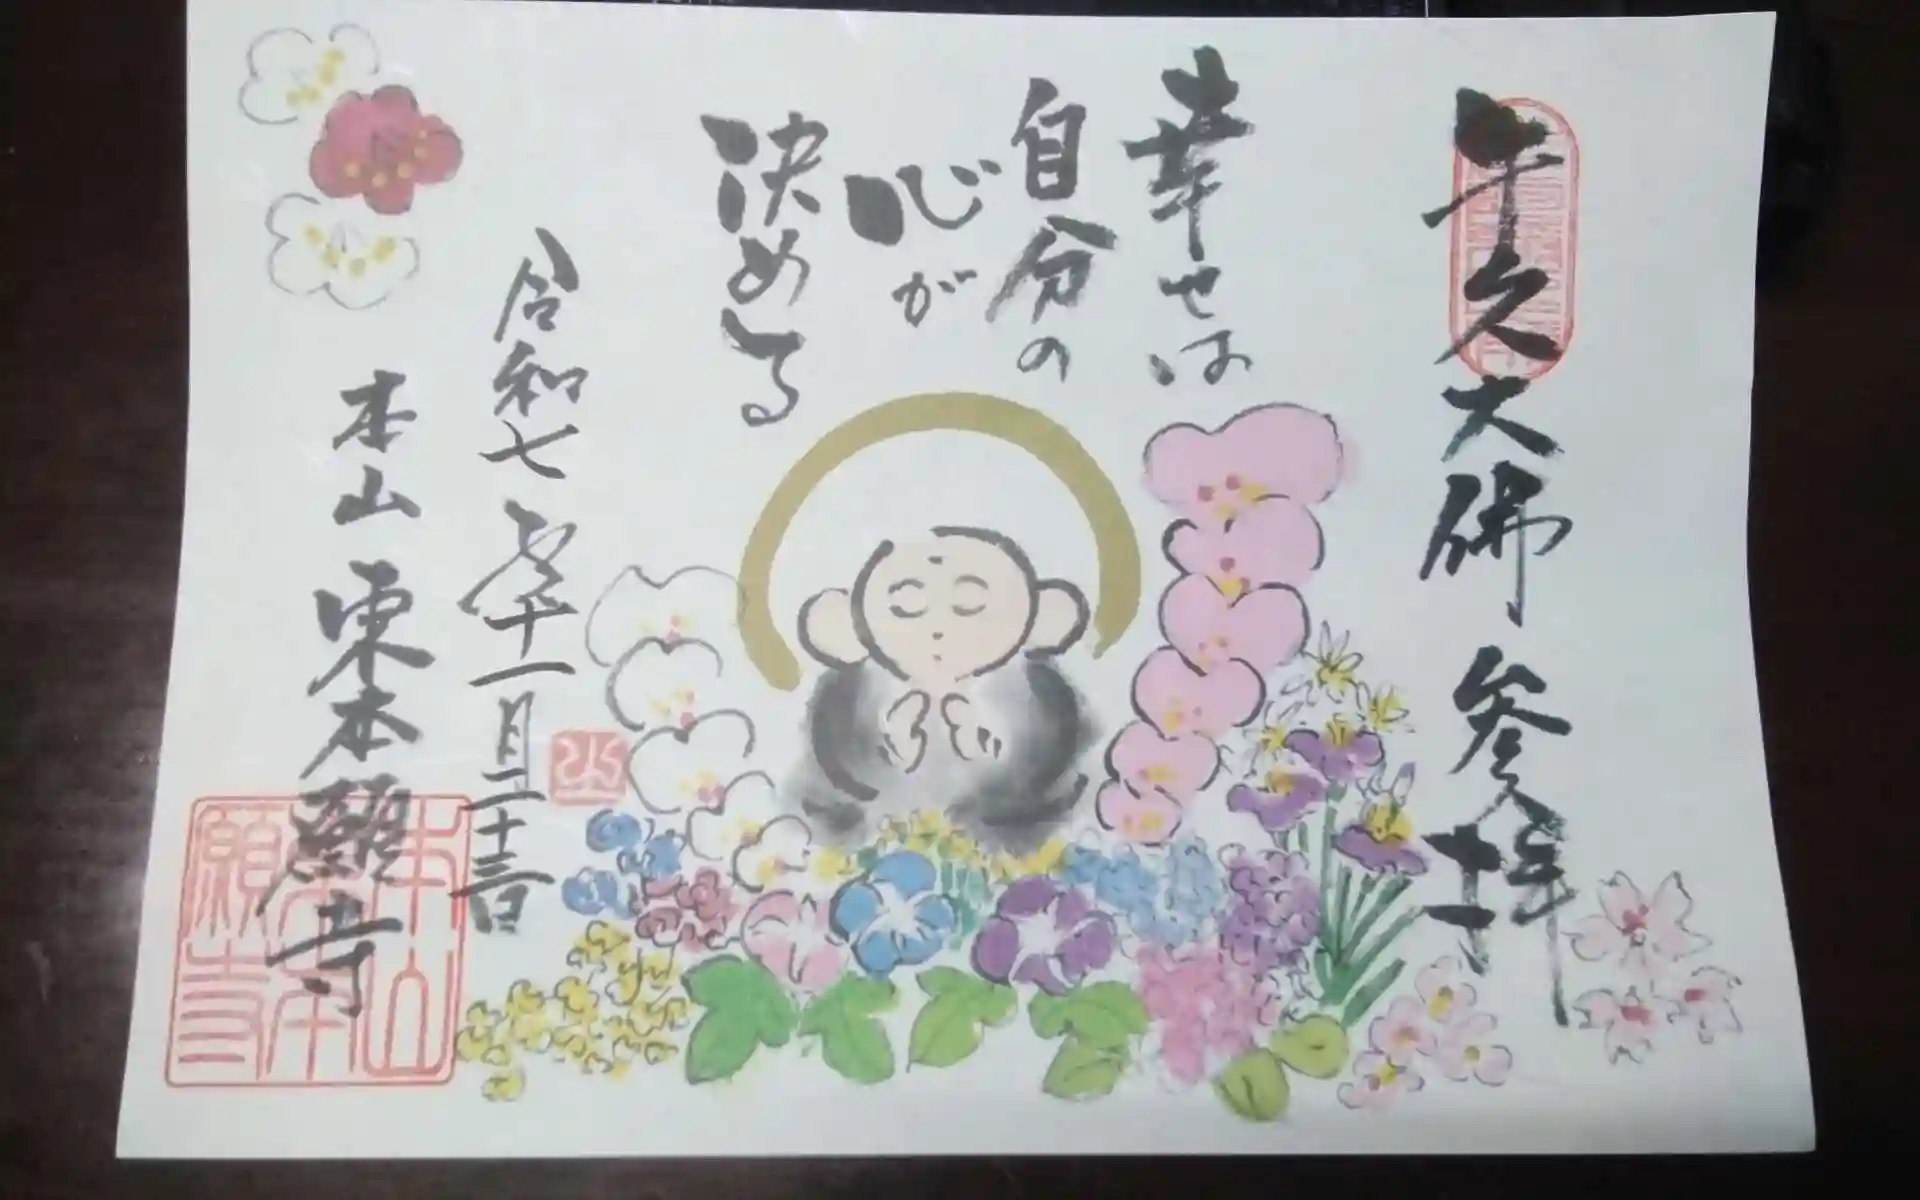 牛久大佛参拝
幸せは
自分の
心が
決める
令和七年十一月二十三日
本山東本願寺
本山
本
願寺